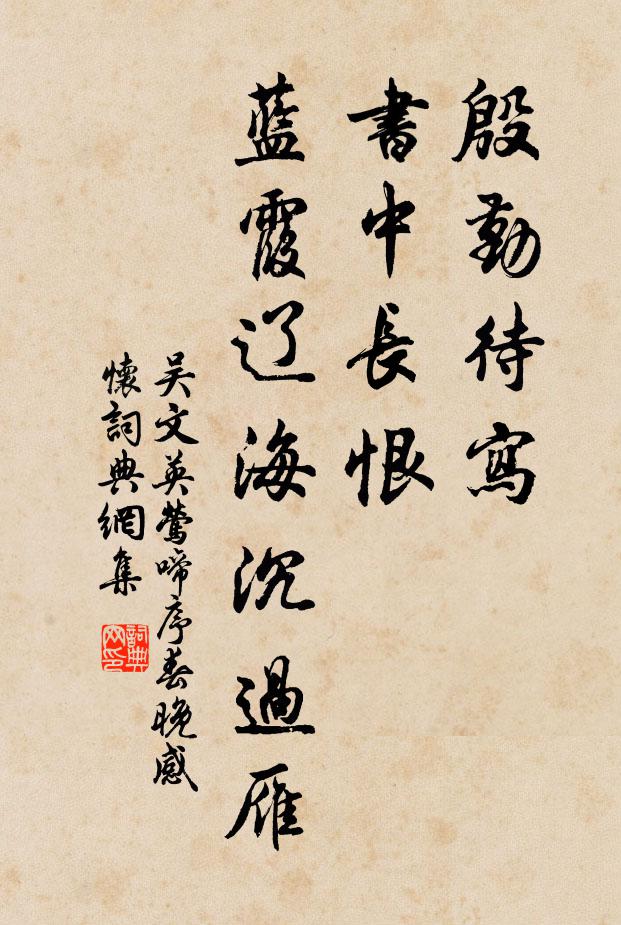 殷勤待寫
書中長恨
藍霞辽海沉過雁
吴文英鶯啼序春晚感
懷詞典網集
詞典网印